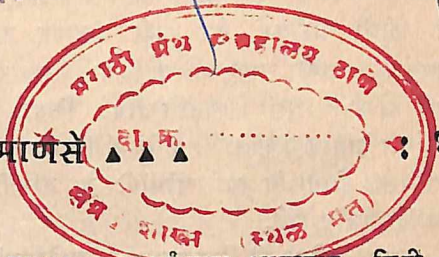 मराठी ग्रंथ संग्रहालय ठाणे
माणसे ▲ ▲ ▲
दा. क्र. ..............
शाखा (स्थळ प्रत)